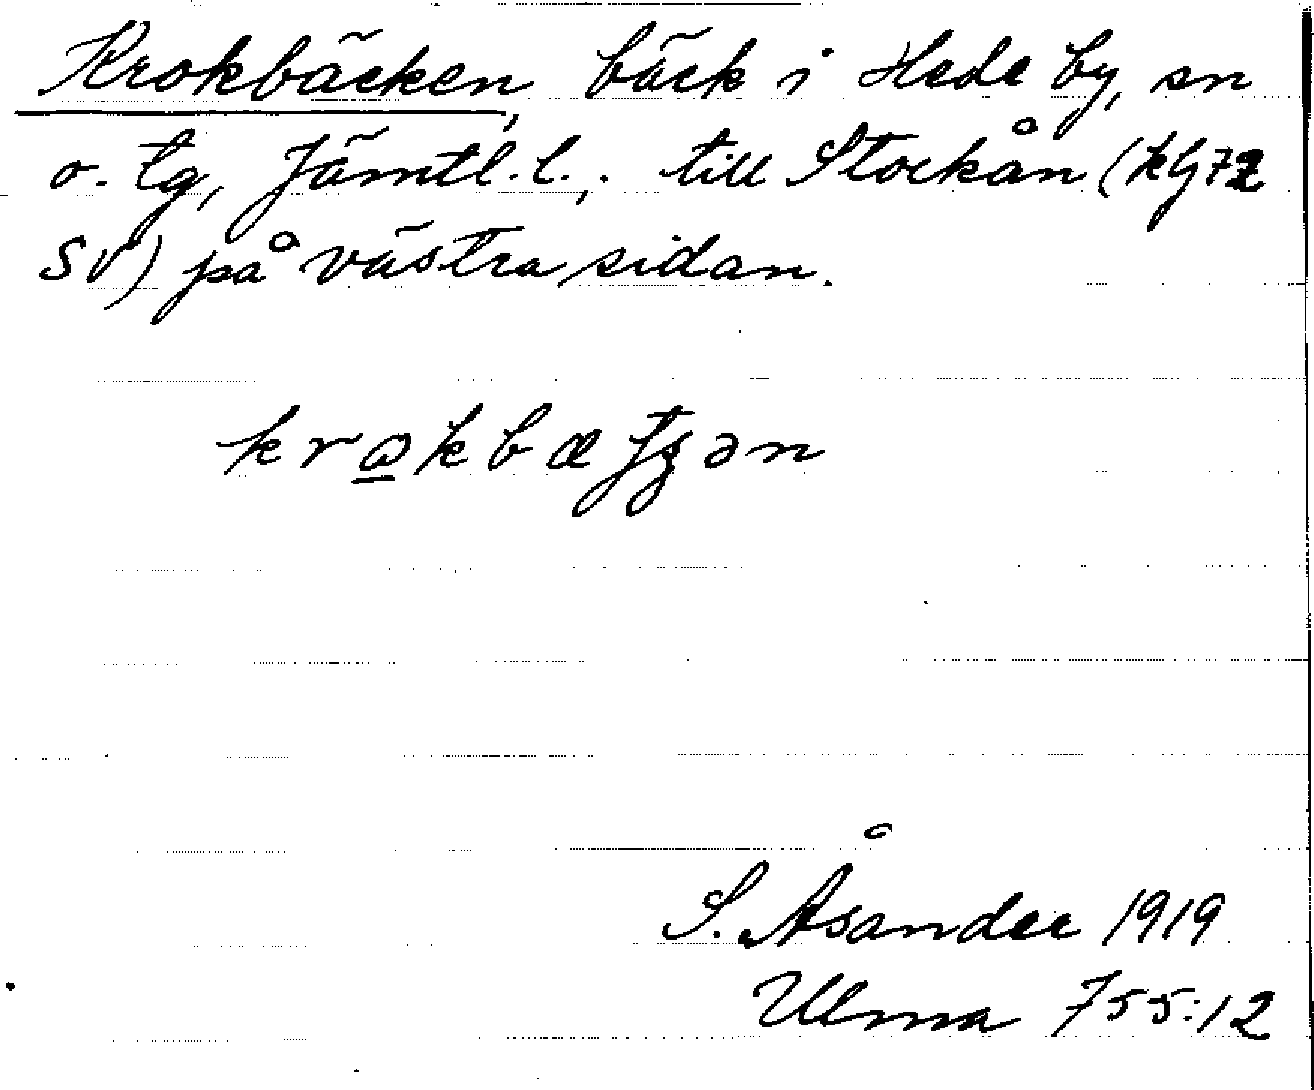 Krokbäcken, bäck i Hede by, sn
o. tg, Jämtl. l., till Stockån (kg 72
SV) på västra sidan.
S. Åsander 1919
Ulma 755:12